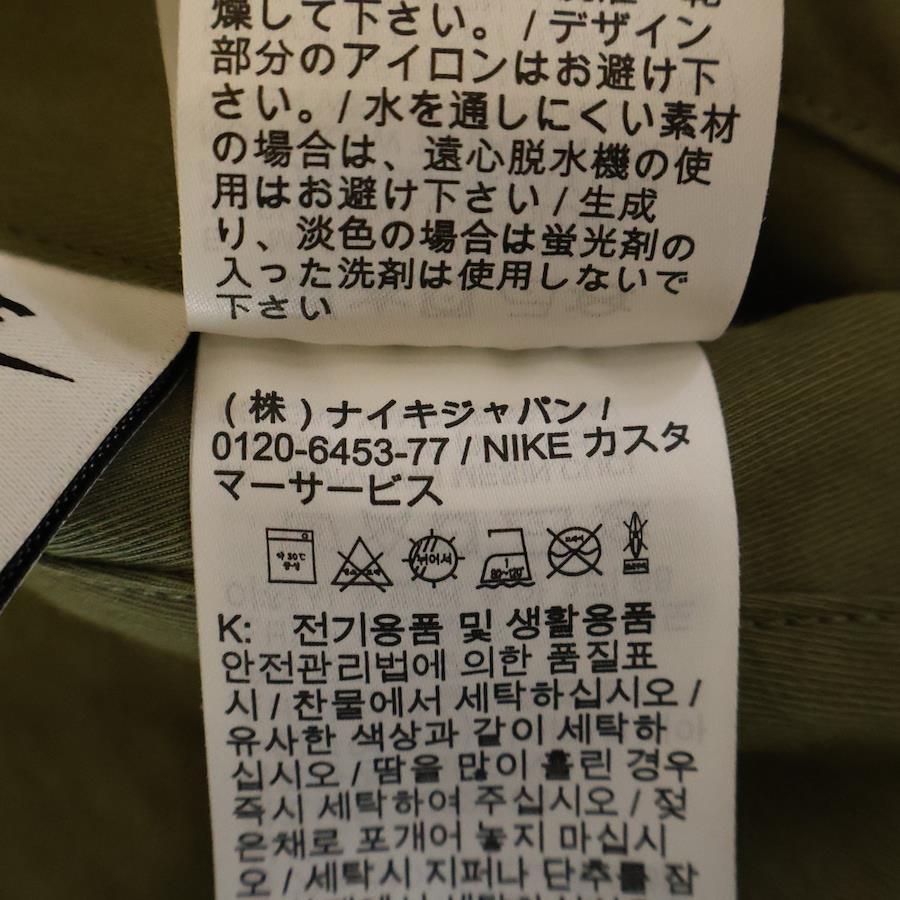 燥して下さい。/ デザイン
部分のアイロンはお避け下
さい。/ 水を通しにくい素材
の場合は、遠心脱水機の使
用はお避け下さい / 生成
り、淡色の場合は蛍光剤の
入った洗剤は使用しないで
下さい
(株)ナイキジャパン /
0120-6453-77 / NIKE カスタ
マーサービス
약30℃
중성
1
80~120
K: 전기용품 및 생활용품
안전관리법에 의한 품질표
시 / 찬물에서 세탁하십시오 /
유사한 색상과 같이 세탁하
십시오 / 땀을 많이 흘린 경우
즉시 세탁하여 주십시오 / 젖
은채로 포개어 놓지 마십시
오 / 세탁시 지퍼나 단추를 잠